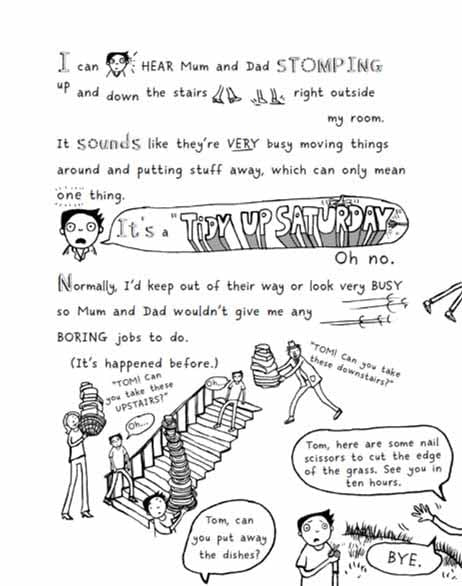 I can HEAR Mum and Dad STOMPING
up and down the stairs right outside
my room.
It sounds like they're VERY busy moving things
around and putting stuff away, which can only mean
one thing.
It's a "TIDY UP SATURDAY
Oh no.
Normally, I'd keep out of their way or look very BUSY
so Mum and Dad wouldn't give me any
BORING jobs to do.
(It's happened before.)
"TOM! Can
you take these
UPSTAIRS?"
Oh...
Oh...
"TOM! Can you take
these downstairs?"
Tom, here are some nail
scissors to cut the edge
of the grass. See you in
ten hours.
Tom, can
you put away
the dishes?
BYE.